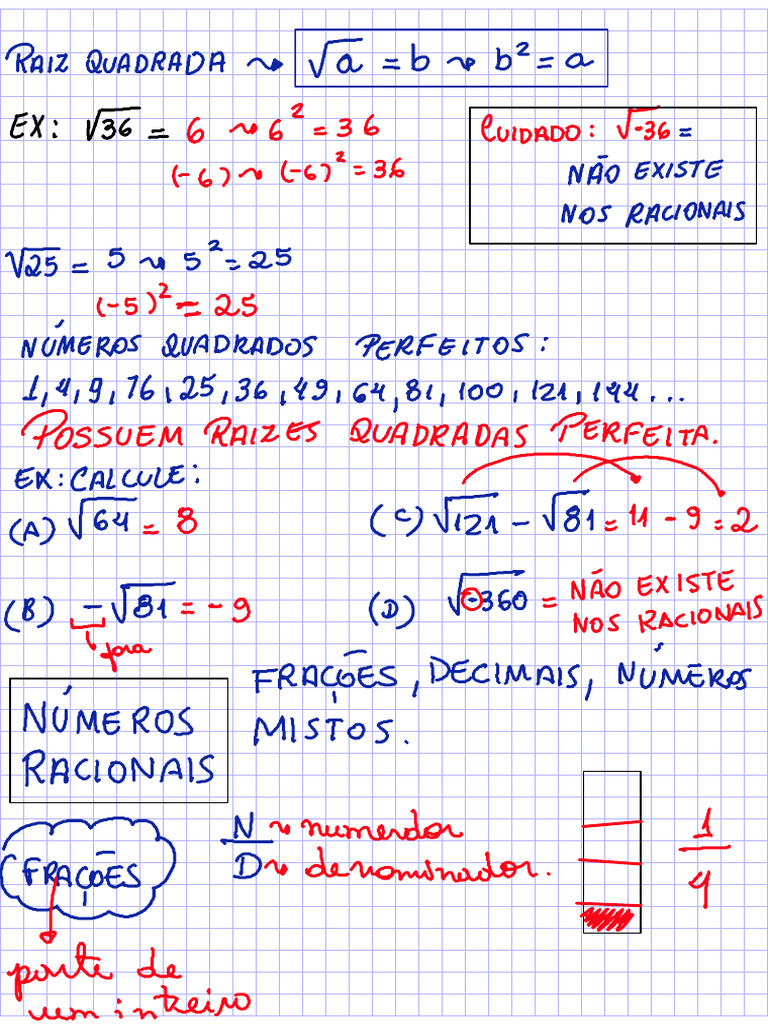 RAIZ QUADRADA ⤳ √a = b ⤳ b² = a
EX: √36 = 6 ⤳ 6² = 36
(-6) ⤳ (-6)² = 36
CUIDADO: √-36 =
NÃO EXISTE
NOS RACIONAIS
√25 = 5 ⤳ 5² = 25
(-5)² = 25
NÚMEROS QUADRADOS PERFEITOS:
1, 4, 9, 16, 25, 36, 49, 64, 81, 100, 121, 144...
POSSUEM RAIZES QUADRADAS PERFEITA.
EX: CALCULE:
(A) √64 = 8
(C) √121 - √81 = 11 - 9 = 2
(B) -√81 = -9
fora
(D) √-360 = NÃO EXISTE
NOS RACIONAIS
NÚMEROS
RACIONAIS
FRAÇÕES, DECIMAIS, NÚMEROS
MISTOS.
FRAÇÕES
N ⤳ numerdor
D ⤳ denominador.
1
4
parte de
um inteiro